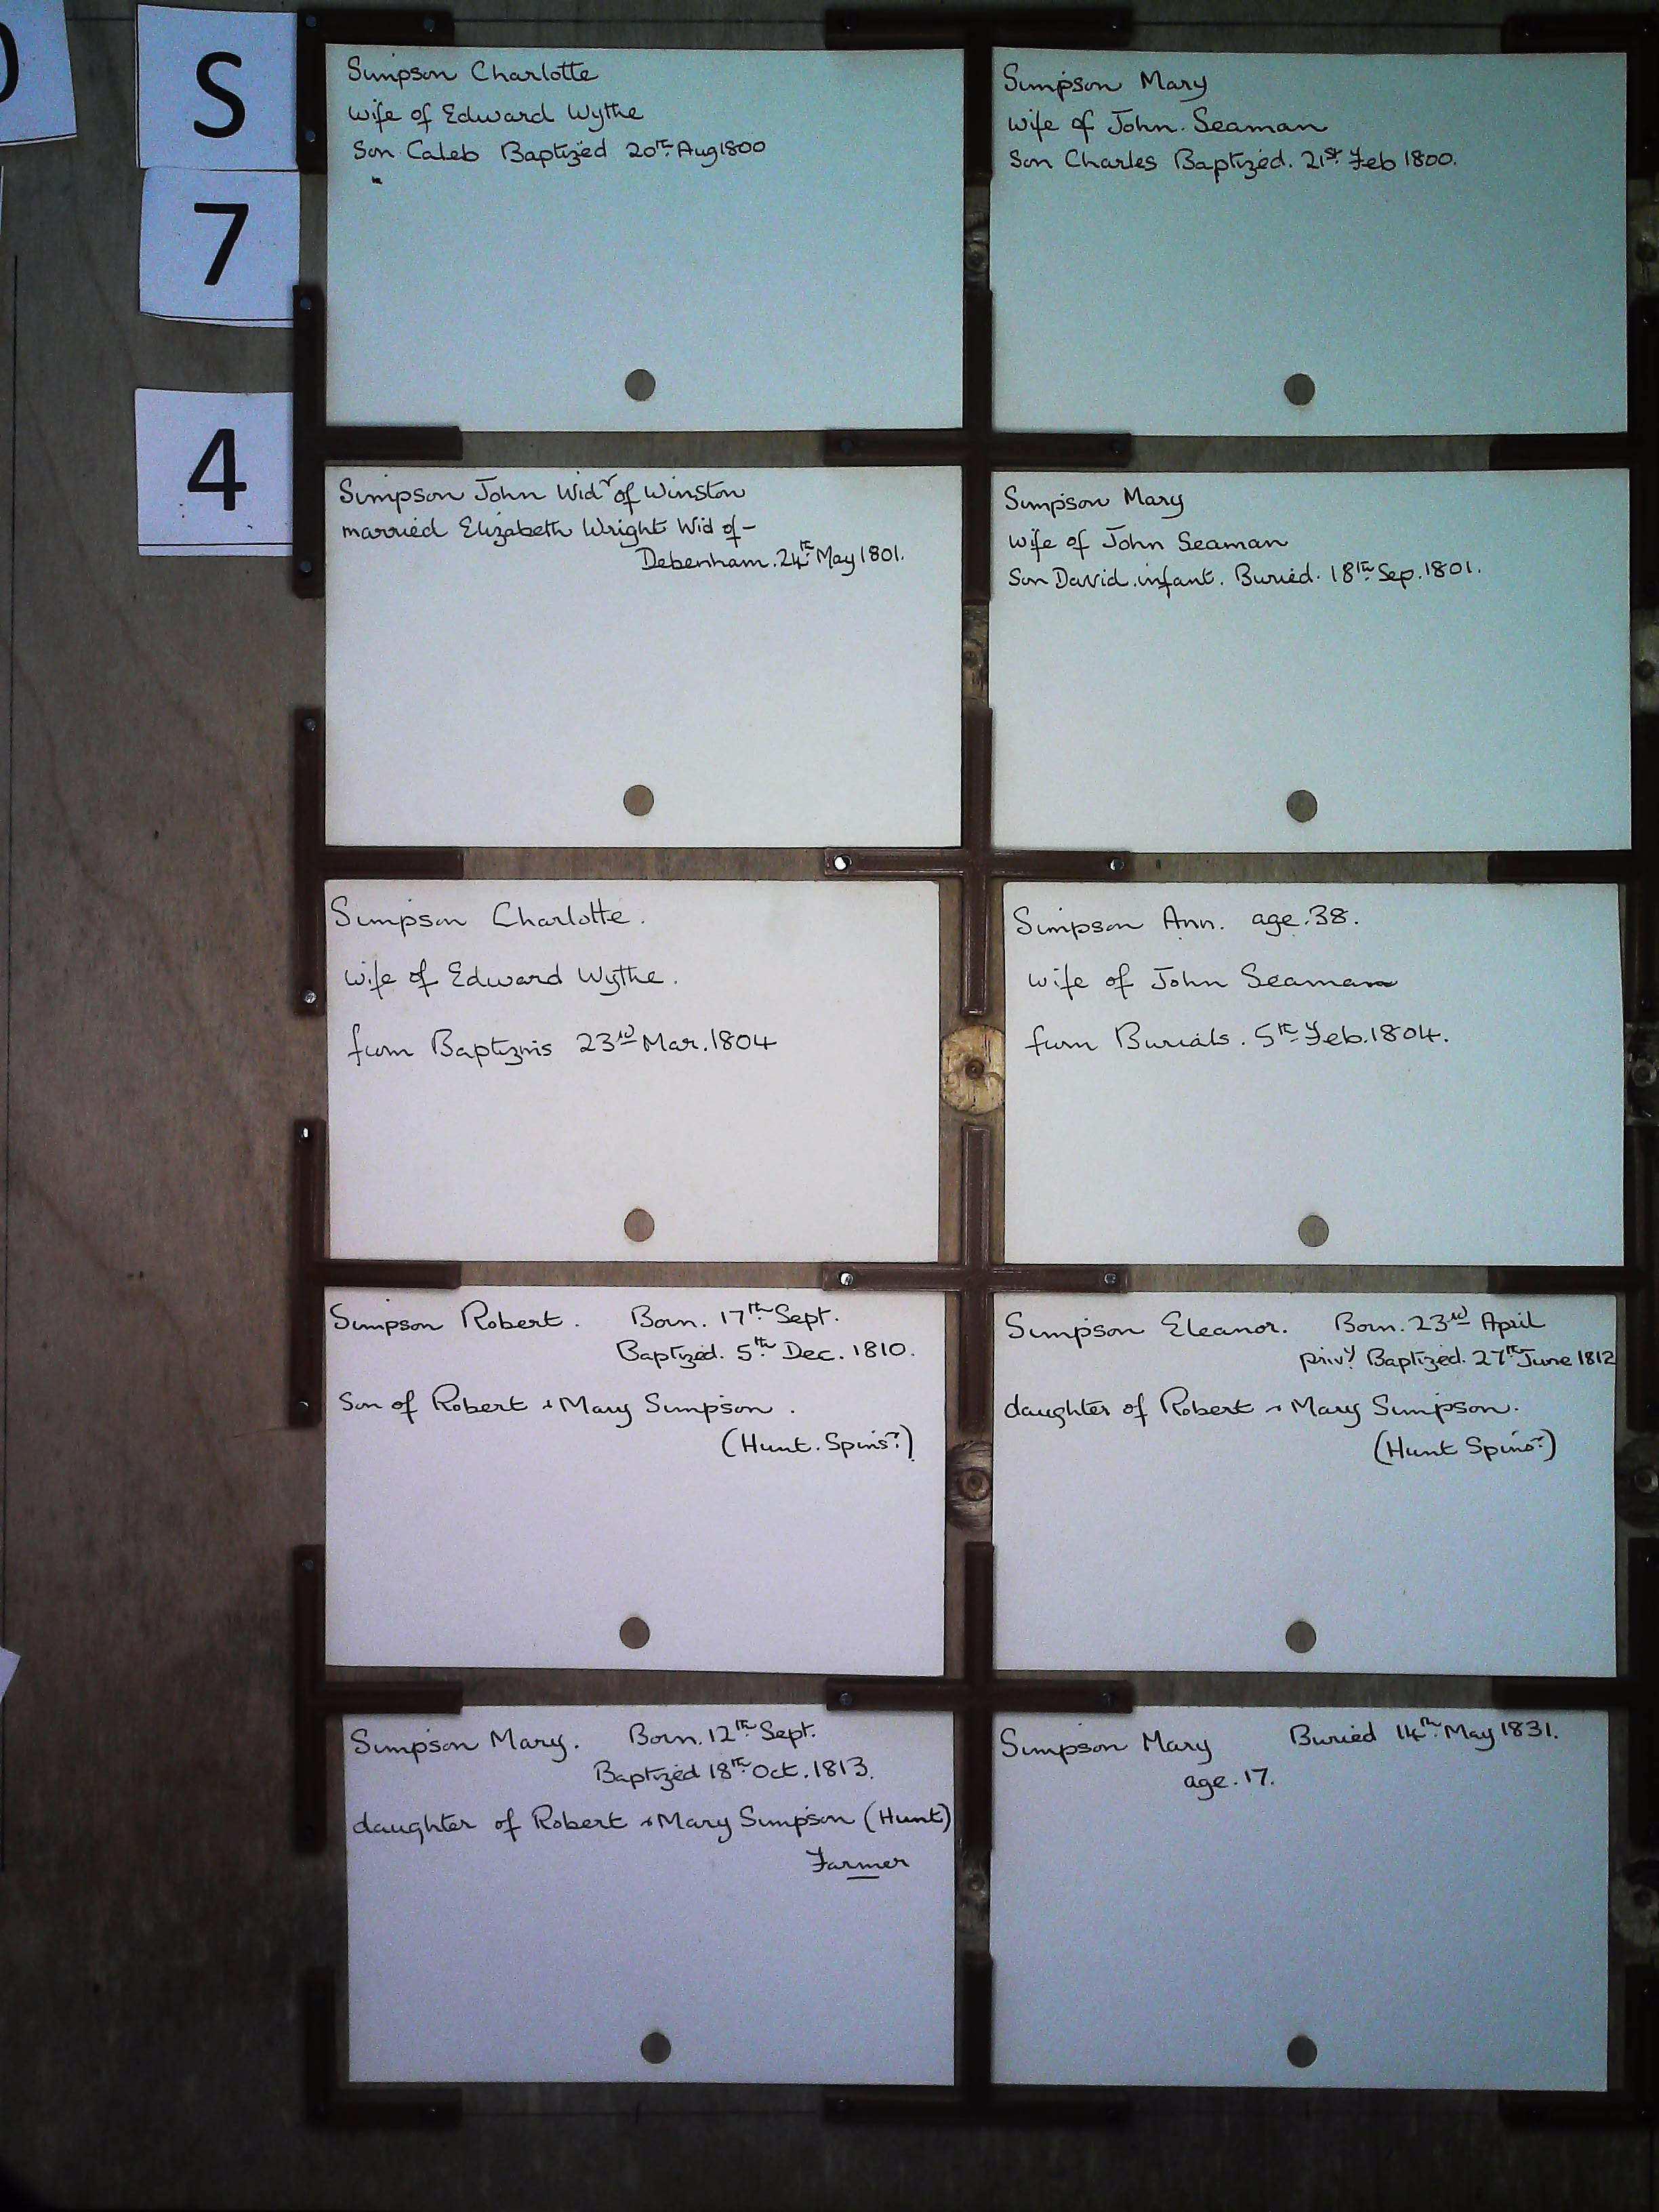 S
7
4
Simpson Charlotte
wife of Edward Wythe
Son Caleb Baptized 20th Aug 1800
Simpson Mary
wife of John. Seaman
Son Charles Baptized. 21st Feb 1800.
Simpson John Widr of Winston
married Elizabeth Wright Wid of -
Debenham. 24th May 1801.
Simpson Mary
wife of John Seaman
Son David. infant. Buried. 18th Sep. 1801.
Simpson Charlotte.
wife of Edward Wythe.
from Baptizms 23rd Mar. 1804
Simpson Ann. age. 38.
wife of John Seaman
from Burials. 5th Feb. 1804.
Simpson Robert. Born. 17th Sept.
Baptized. 5th Dec. 1810.
Son of Robert + Mary Simpson.
(Hunt. Spinsr.)
Simpson Eleanor. Born. 23rd April
privy. Baptized. 27th June 1812
daughter of Robert + Mary Simpson.
(Hunt Spinsr.)
Simpson Mary. Born. 12th Sept.
Baptized 18th Oct. 1813.
daughter of Robert + Mary Simpson (Hunt)
Farmer
Simpson Mary Buried 14th May 1831.
age. 17.